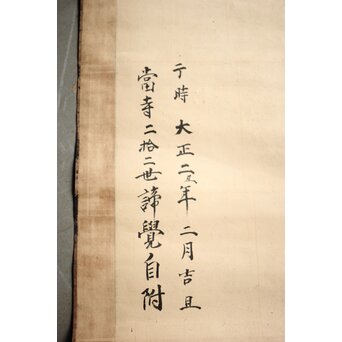 于時大正二年二月吉旦
當寺二拾二世諦覺自附